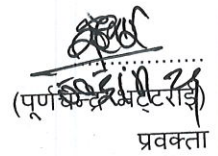 (पूर्णचन्द्र भट्टराई)
प्रवक्ता